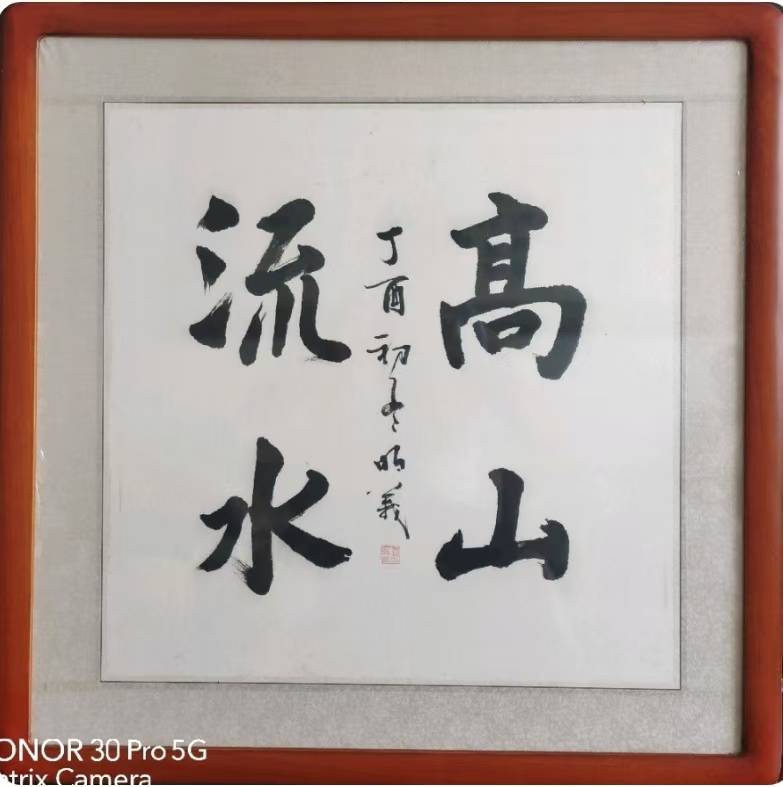 高山
丁酉初冬明義
流水
ONOR 30 Pro 5G
atrix Camera